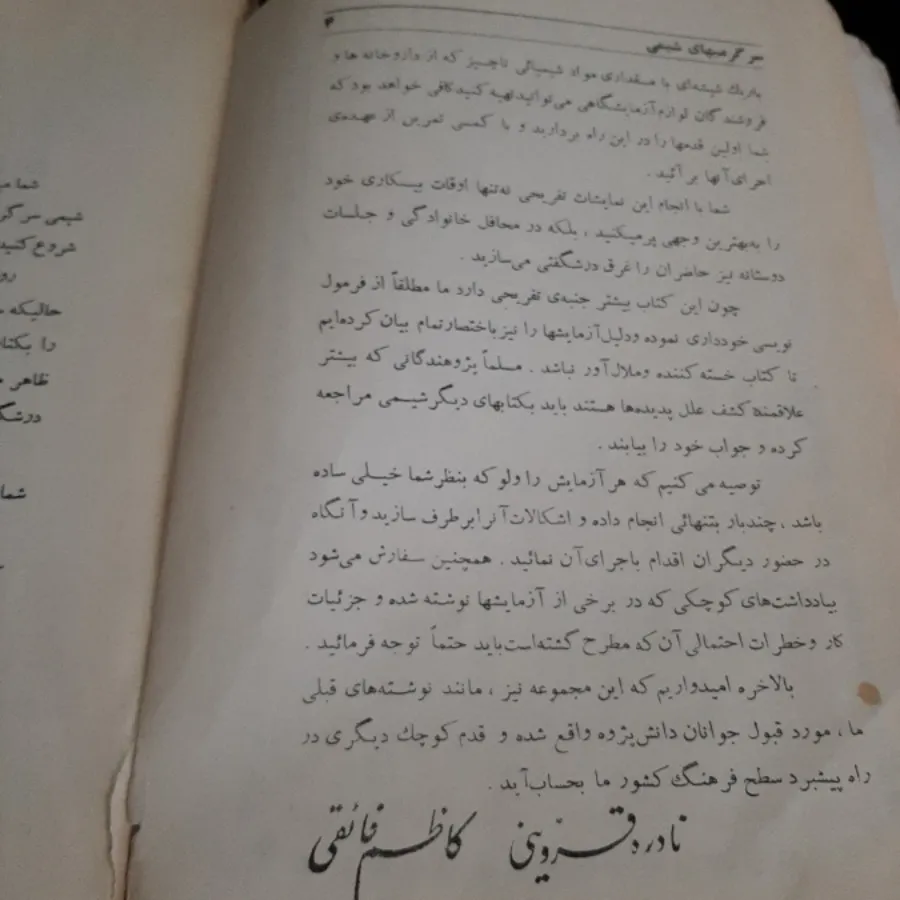 سرگرمیهای شیمی ۳
باریك شیشه‌ای با مقداری مواد شیمیائی ناچیز که از داروخانه‌ها و
فروشندگان لوازم آزمایشگاهی می‌توانید تهیه کنید کافی خواهد بود که
شما اولین قدمها را در این راه بردارید و با کمی تمرین از عهده‌ی
اجرای آنها بر آئید.
شما با انجام این نمایشات تفریحی نه‌تنها اوقات بیکاری خود
را به‌بهترین وجهی پر میکنید ، بلکه در محافل خانوادگی و جلسات
دوستانه نیز حاضران را غرق در شگفتی می‌سازید .
چون این کتاب بیشتر جنبه‌ی تفریحی دارد ما مطلقاً از فرمول
نویسی خودداری نموده و دلیل آزمایشها را نیز باختصار تمام بیان کرده‌ایم
تا کتاب خسته کننده و ملال‌آور نباشد . مسلماً پژوهندگانی که بیشتر
علاقمند کشف علل پدیده‌ها هستند باید بکتابهای دیگر شیمی مراجعه
کرده و جواب خود را بیابند .
توصیه می کنیم که هر آزمایش را ولو که بنظر شما خیلی ساده
باشد ، چندبار بتنهائی انجام داده و اشکالات آنرا برطرف سازید و آنگاه
در حضور دیگران اقدام باجرای آن نمائید . همچنین سفارش می‌شود
بیادداشت‌های کوچکی که در برخی از آزمایشها نوشته شده و جزئیات
کار و خطرات احتمالی آن که مطرح گشته‌است باید حتماً توجه فرمائید .
بالاخره امیدواریم که این مجموعه نیز ، مانند نوشته‌های قبلی
ما ، مورد قبول جوانان دانش‌پژوه واقع شده و قدم کوچك دیگری در
راه پیشبرد سطح فرهنگ کشور ما بحساب آید .
نادره قزوینی کاظم فائقی
شیمی سرگر
شروع کنید
رو
حالیکه
را بکتا
ظاهر
درشگ
شما